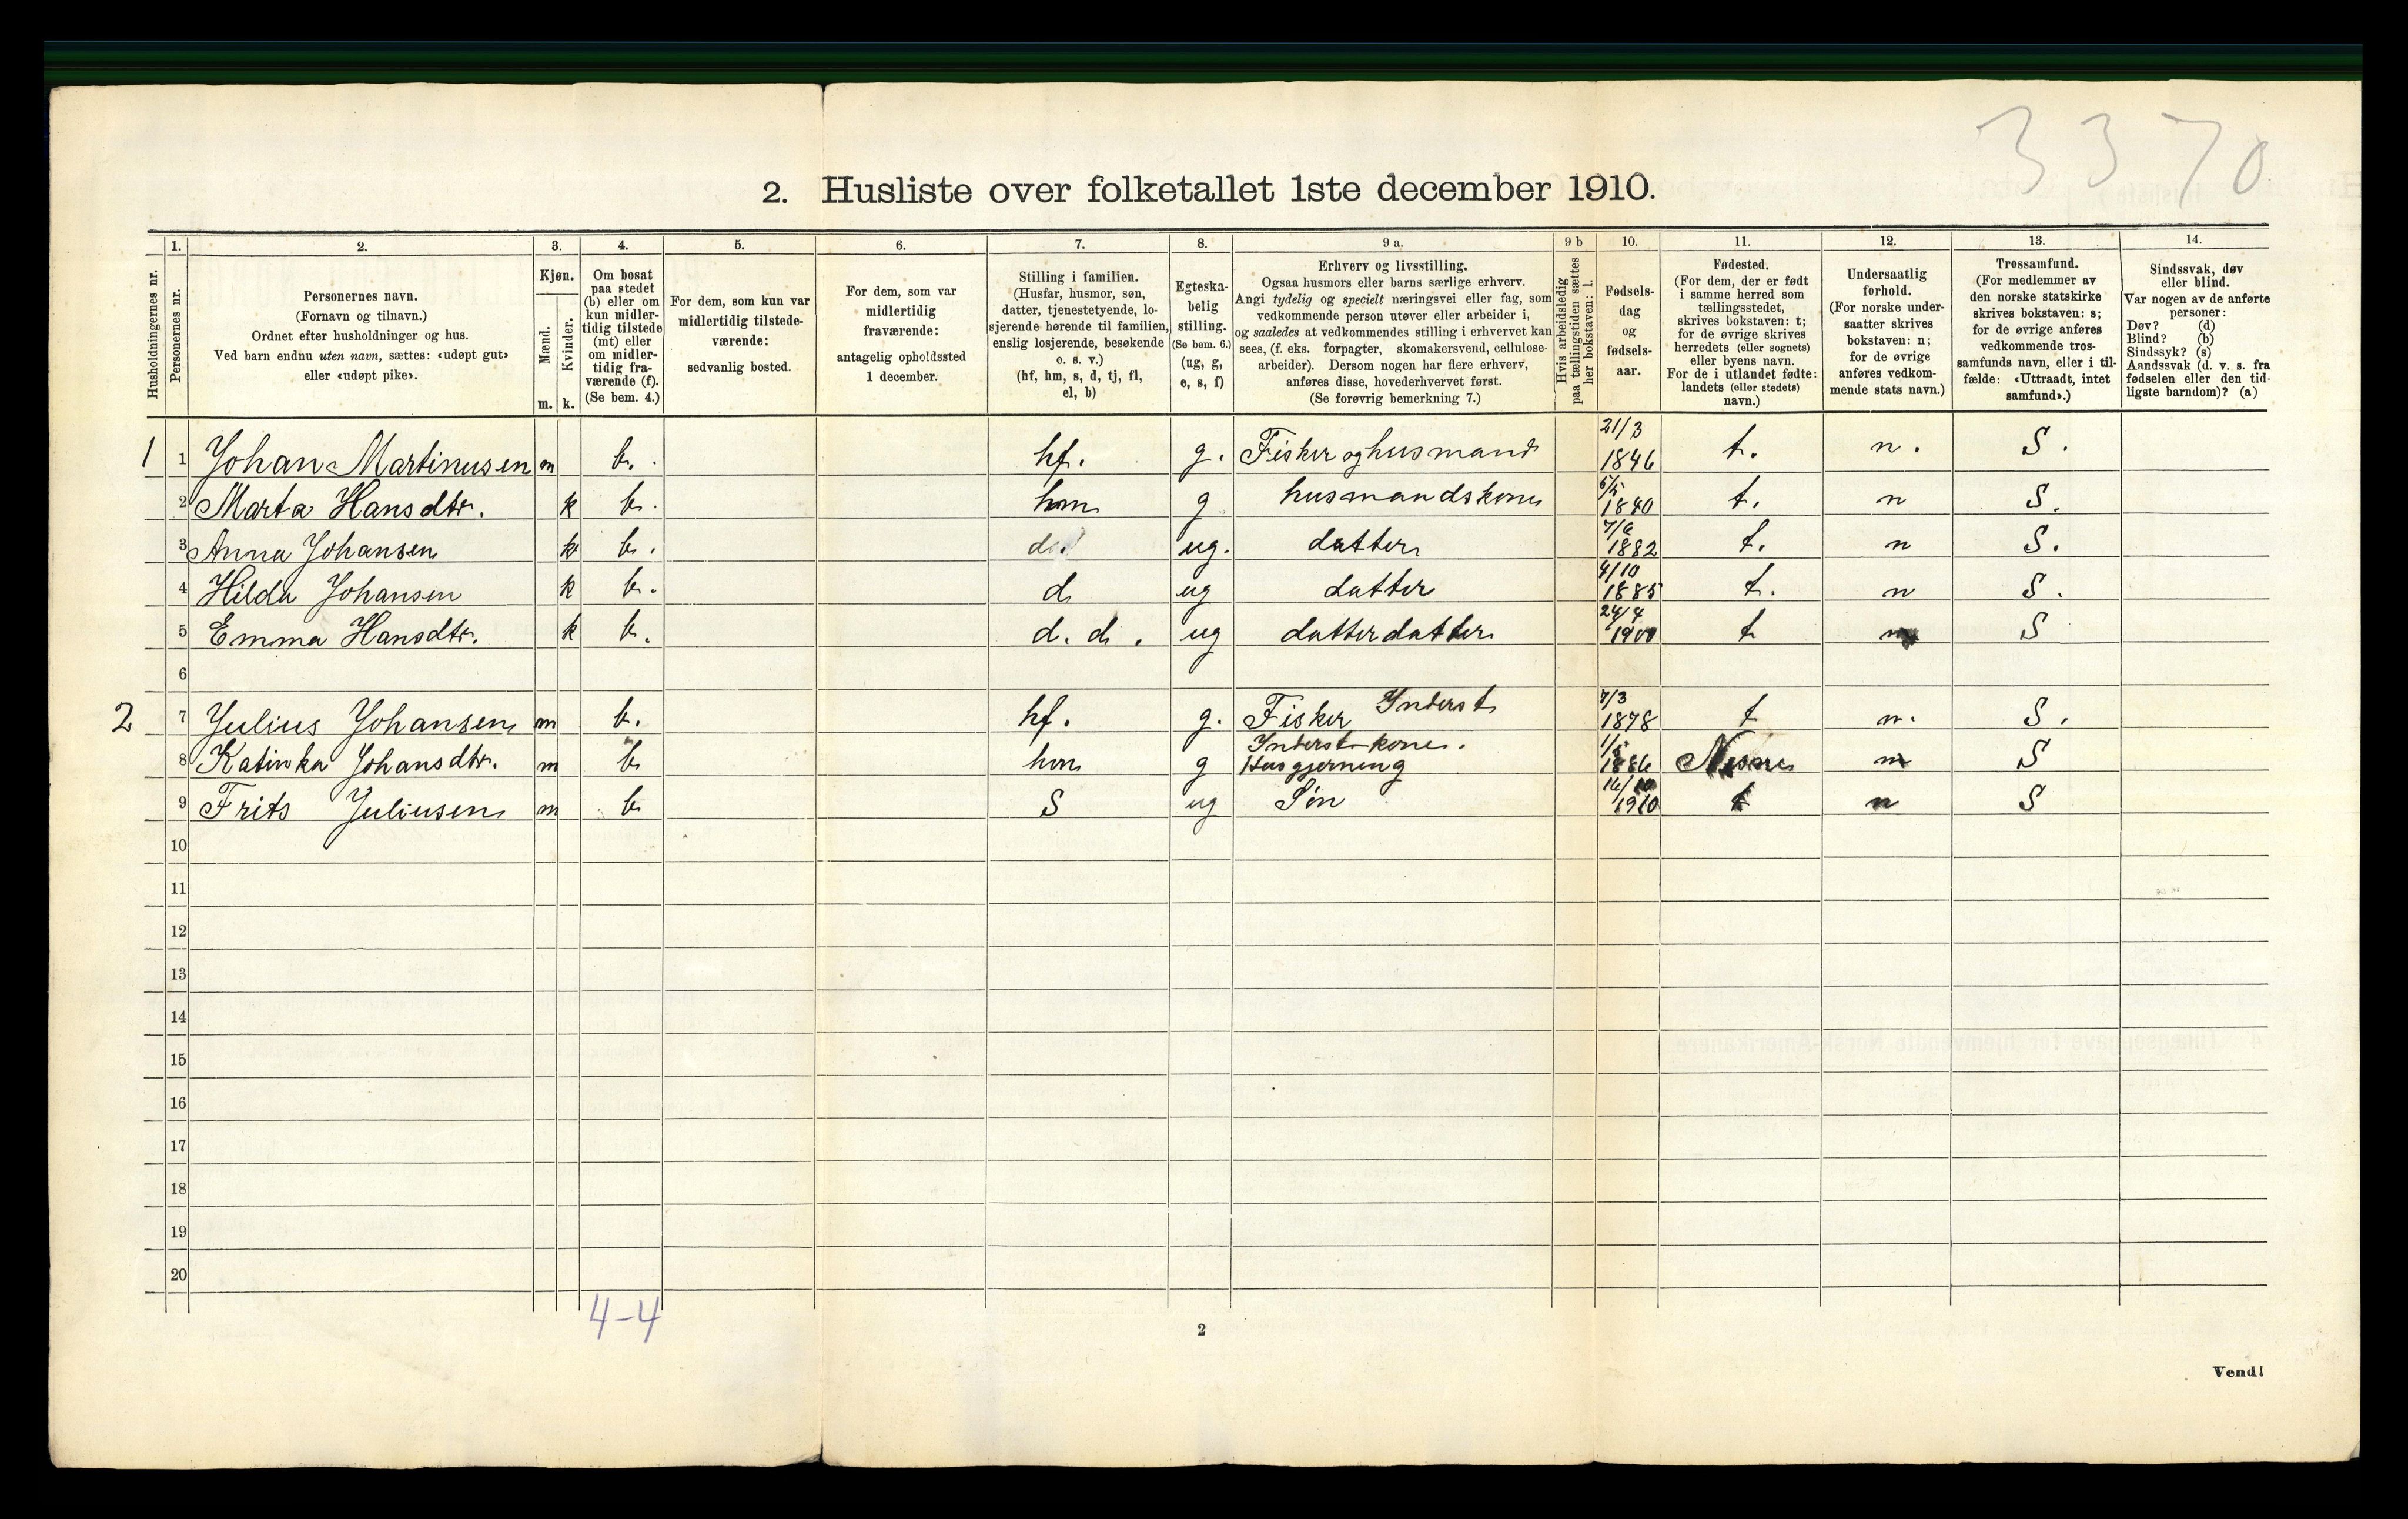 3370
2. Husliste over folketallet 1ste december 1910.
Husholdningernes nr.
1. Personernes nr.
2. Personernes navn. (Fornavn og tilnavn.) Ordnet efter husholdninger og hus. Ved barn endnu uten navn, sættes: «udøpt gut» eller «udøpt pike».
3. Kjøn. Mænd. m. Kvinder. k.
4. Om bosat paa stedet (b) eller om kun midlertidig tilstede (mt) eller om midlertidig fraværende (f). (Se bem. 4.)
5. For dem, som kun var midlertidig tilstedeværende: sedvanlig bosted.
6. For dem, som var midlertidig fraværende: antagelig opholdssted 1 december.
7. Stilling i familien. (Husfar, husmor, søn, datter, tjenestetyende, losjerende hørende til familien, enslig losjerende, besøkende o. s. v.) (hf, hm, s, d, tj, fl, el, b)
8. Egteskabelig stilling. (Se bem. 6.) (ug, g, e, s, f)
9 a. Erhverv og livsstilling. Ogsaa husmors eller barns særlige erhverv. Angi tydelig og specielt næringsvei eller fag, som vedkommende person utøver eller arbeider i, og saaledes at vedkommendes stilling i erhvervet kan sees, (f. eks. forpagter, skomakersvend, cellulosearbeider). Dersom nogen har flere erhverv, anføres disse, hovederhvervet først. (Se forøvrig bemerkning 7.)
9 b Hvis arbeidsledig paa tællingstiden sættes her bokstaven: l.
10. Fødselsdag og fødselsaar.
11. Fødested. (For dem, der er født i samme herred som tællingsstedet, skrives bokstaven: t; for de øvrige skrives herredets (eller sognets) eller byens navn. For de i utlandet fødte: landets (eller stedets) navn.)
12. Undersaatlig forhold. (For norske undersaatter skrives bokstaven: n; for de øvrige anføres vedkommende stats navn.)
13. Trossamfund. (For medlemmer av den norske statskirke skrives bokstaven: s; for de øvrige anføres vedkommende trossamfunds navn, eller i tilfælde: «Uttraadt, intet samfund».)
14. Sindssvak, døv eller blind. Var nogen av de anførte personer: Døv? (d) Blind? (b) Sindssyk? (s) Aandssvak (d. v. s. fra fødselen eller den tidligste barndom)? (a)
1 1 Johan Martinusen m b. hf. g. Fisker og husmand 21/3 1846 t. n. S.
2 Marta Hansdtr. k b. hm g husmandskone 5/5 1840 t. n S.
3 Anna Johansen k b. d. ug. datter 7/6 1882 t. n S.
4 Hilda Johansen k b. d ug datter 4/10 1885 t. n S.
5 Emma Hansdtr. k b. d. d. ug datterdatter 24/4 1900 t n S
6
2 7 Julius Johansen m b. hf. g. Fisker Inderst 7/3 1878 t n. S.
8 Katinka Johansdtr. m b hm g Inderst kone. Husgjerning 1/5 1886 Nesne n S
9 Frits Juliusen m b S ug Søn 14/10 1910 t n S
10
11
12
13
14
15
16
17
18
19
20
4-4
2
Vend!